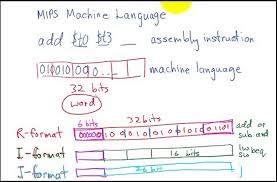 MIPS Machine Language
add $t0 $t3 __ assembly instruction
010100100... machine language
32 bits
word
6 bits 32 bits
R-format 000000 add or sub and
I-format 16 bits lw beq sw
J-format 26 bit j